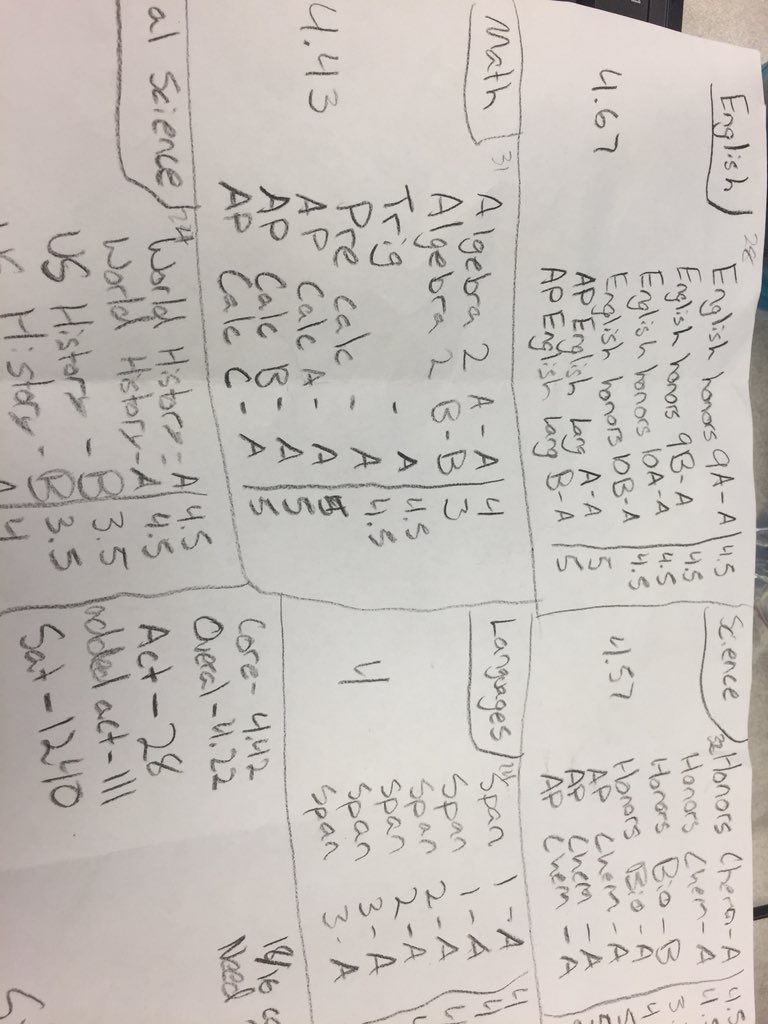 English
28
4.67
English honors 9A-A 4.5
English honors 9B-A 4.5
English honors 10A-A 4.5
English honors 10B-A 4.5
AP English Lang A-A 5
AP English Lang B-A 5
Science
32
4.57
Honors Chem-A 4.5
Honors Chem-A 4.5
Honors Bio-B
Honors Bio-A
AP Chem-A
AP Chem-A
AP Chem-A
Math
31
4.43
Algebra 2 A-A 4
Algebra 2 B-B 3
Trig - A 4.5
Pre calc - A 4.5
AP Calc A-A 5
AP Calc B-A 5
AP Calc C-A 5
Languages
24
4
Span 1-A 4
Span 1-A 4
Span 2-A 4
Span 2-A
Span 3-A
Span 3-A
al Science
24
World History-A 4.5
World History-A 4.5
US History-B 3.5
US History-B 3.5
History A 4
Core-4.42
Overal-4.22
Act-28
added act-111
Sat-1240
Need